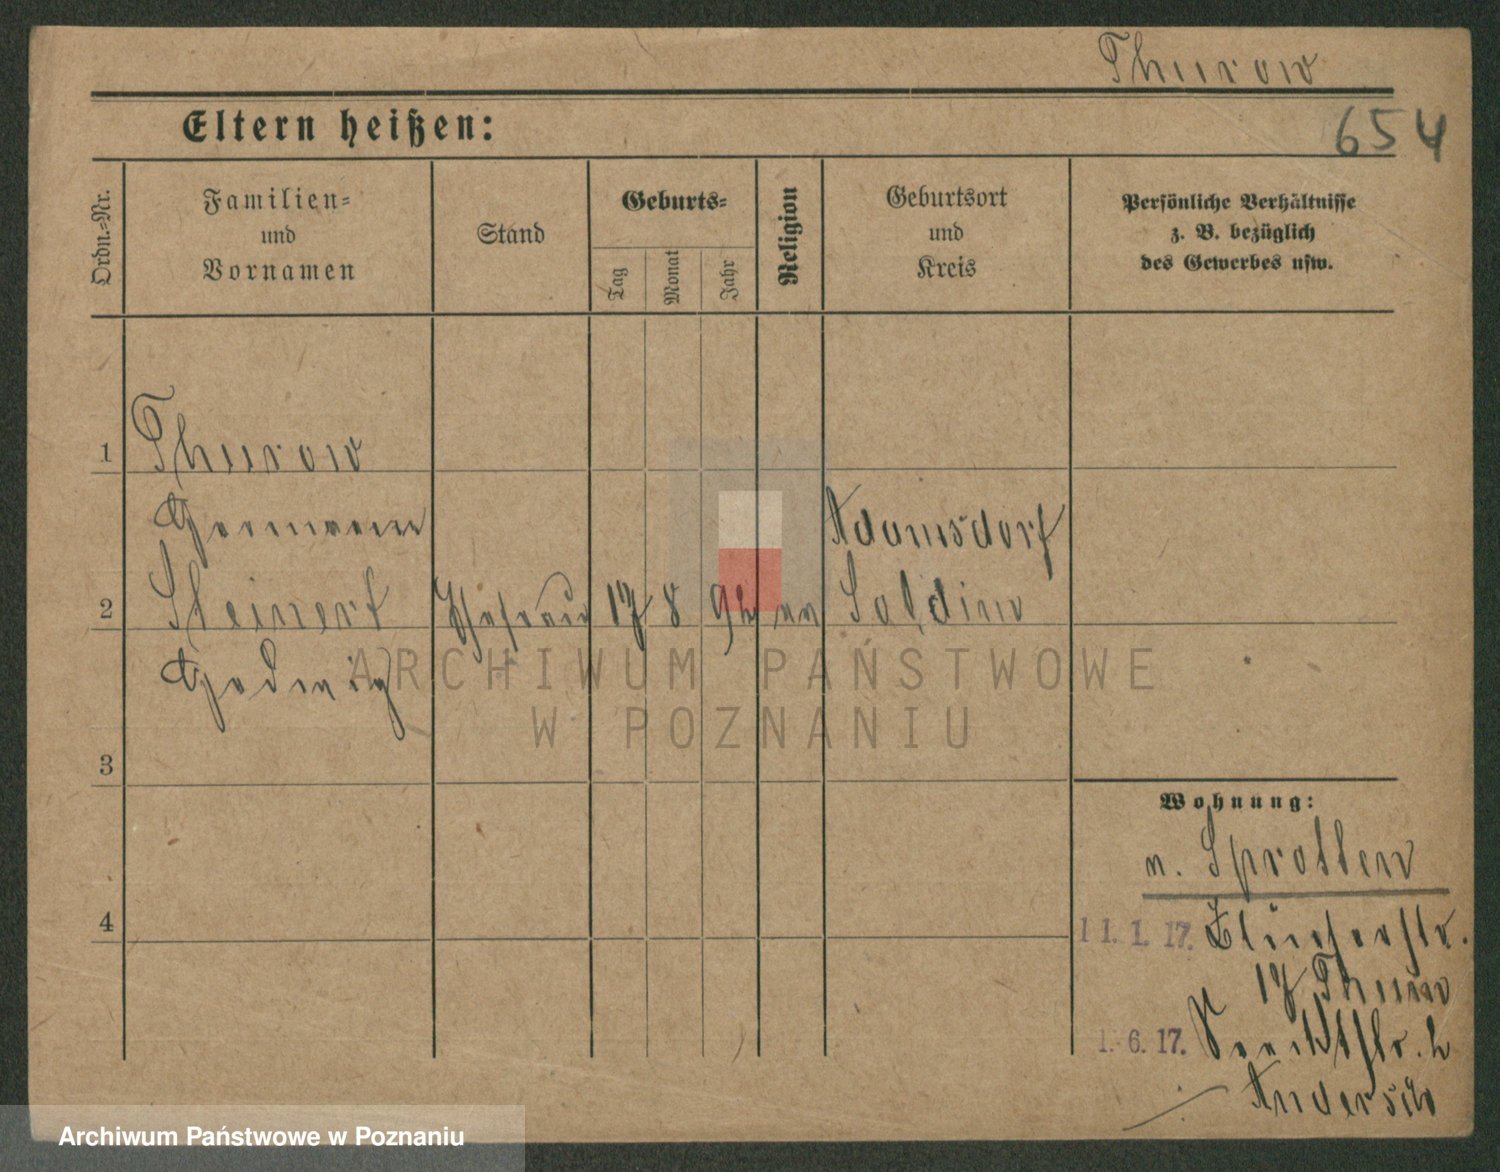 Thurow
654
Eltern heißen:
Ordn.-Nr.
Familien-
und
Vornamen
Stand
Geburts-
Tag
Monat
Jahr
Religion
Geburtsort
und
Kreis
Persönliche Verhältnisse
z. B. bezüglich
des Gewerbes usw.
1
Thurow
Hermann
Adamsdorf
2
Steinert
Ehefrau
17
8
92
ev
Soldin
Hedwig
3
4
Wohnung:
n. Sprotten
11. 1. 17. Blücherstr.
17 Thurow
1. 6. 17.
ARCHIWUM PAŃSTWOWE
W POZNANIU
Archiwum Państwowe w Poznaniu